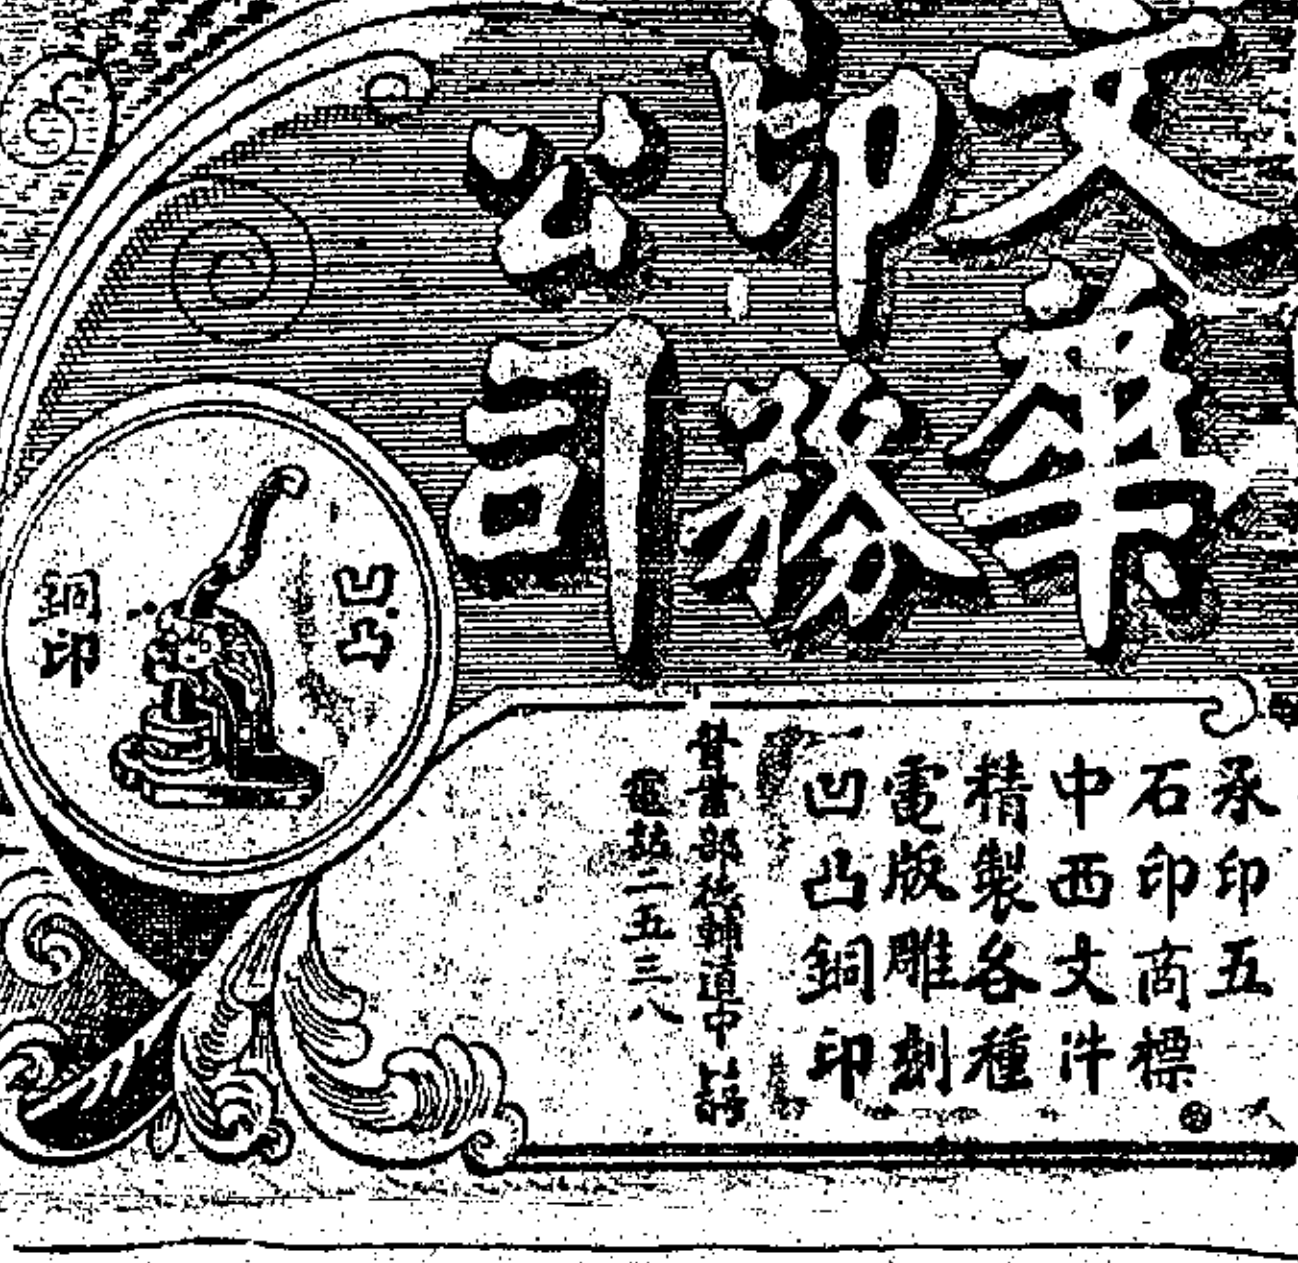 文華
印務
公司
凹凸
銅印
承印五
石印商標
中西文件
精製各種
電版雕刻
凹凸銅印
營業部德輔道中
電話二五三八